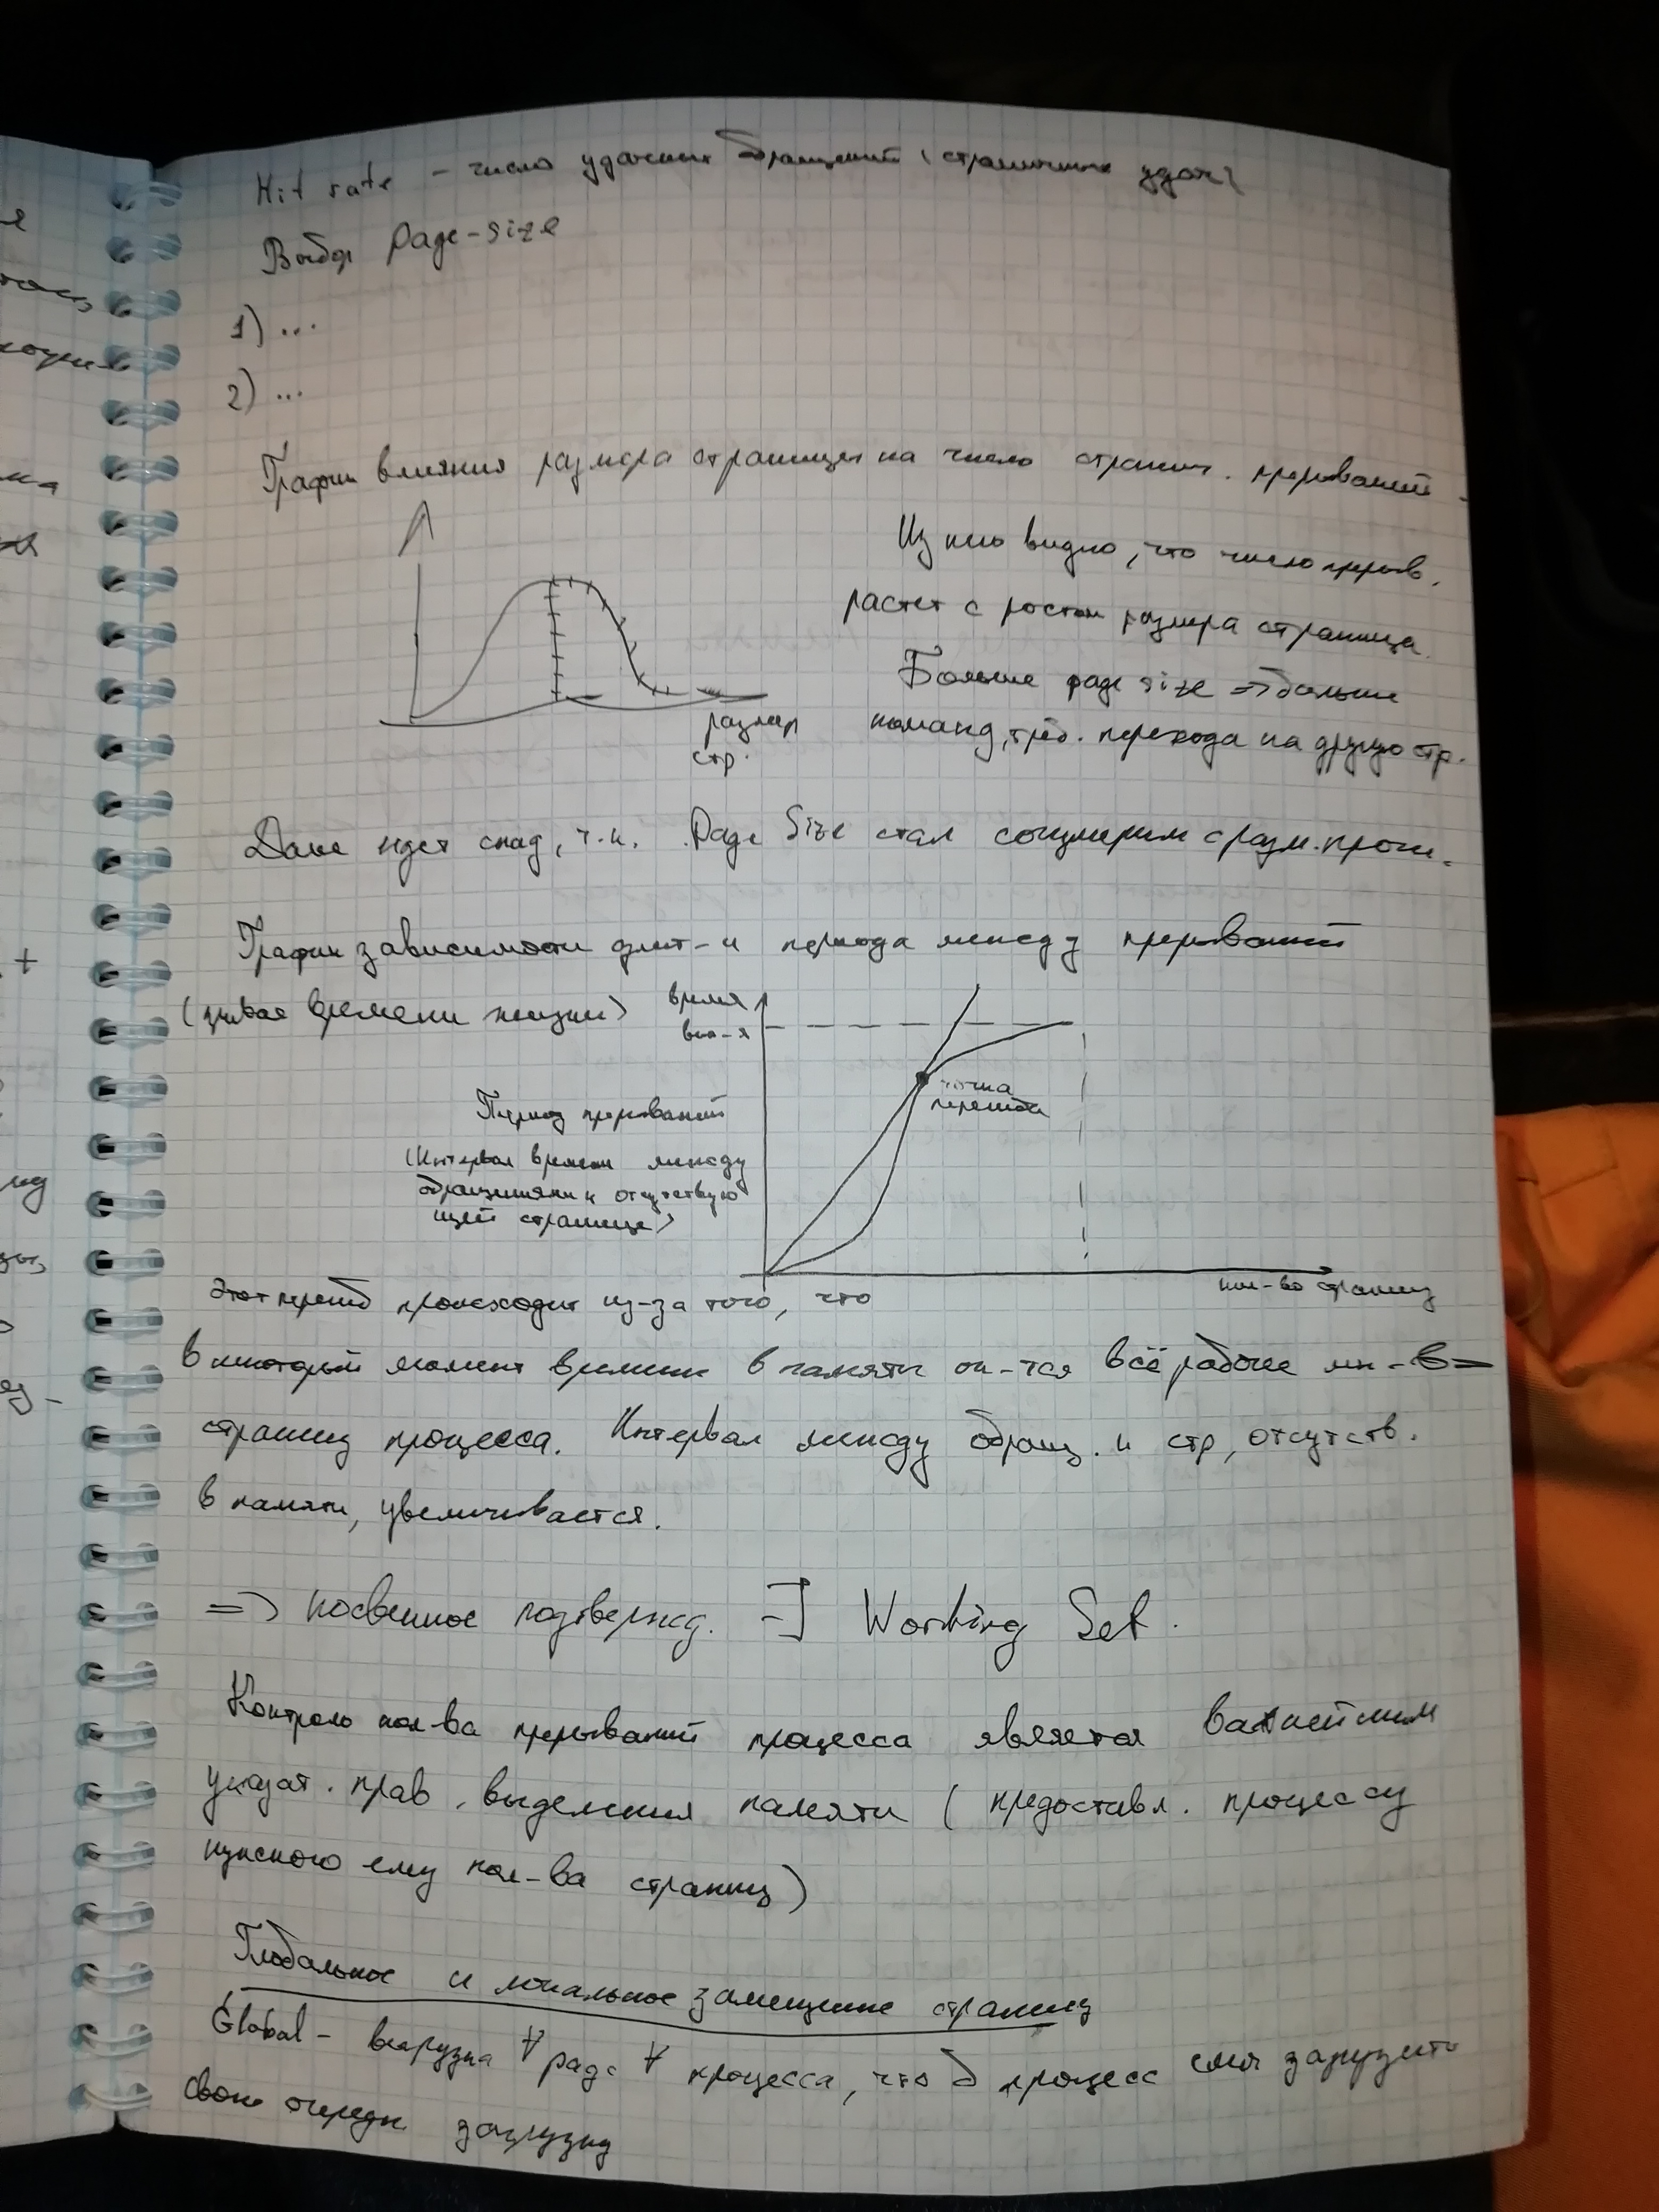 Hit rate - число удачных обращений (страничных удач)
Выбор Page-size
1) ...
2) ...
График влияния размера страницы на число странич. прерываний -
Из него видно, что число прерыв.
растет с ростом размера страницы.
Больше page size => больше
команд, треб. перехода на другую стр.
размер
стр.
Далее идет спад, т.к. Page Size стал соизмерим с разм. прогр.
График зависимости длит-и периода между прерываний
(кривая времени жизни)
время
вып-я
точка
перегиба
Период прерываний
(Интервал времени между
обращениями к отсутствую
щей странице)
кол-во страниц
Этот перегиб происходит из-за того, что
в некоторый момент времени в памяти ок-тся всё рабочее мн-во
страниц процесса. Интервал между обращ. к стр, отсутств.
в памяти, увеличивается.
=> косвенное подтвержд. ∃ Working Set.
Контроль кол-ва прерываний процесса является важнейшим
указат. прав. выделения памяти (предоставл. процессу
нужного ему кол-ва страниц)
Глобальное и локальное замещение страниц
Global - выгрузка ∀ page ∀ процесса, что б процесс смог загрузить
свою